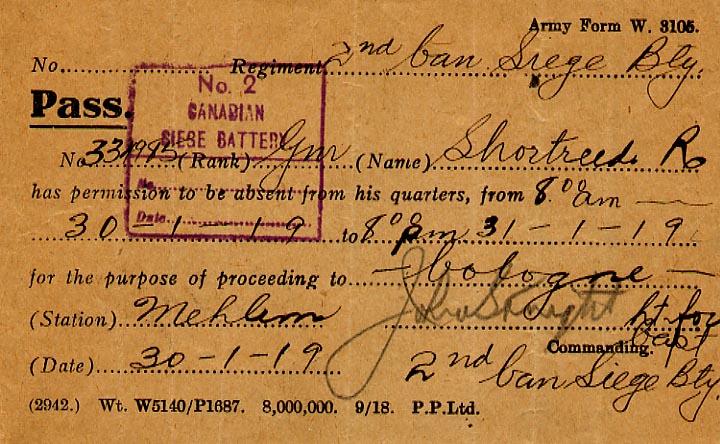 Army Form W. 3105.
No. Regiment 2nd Can Siege Bty.
Pass.
No. 2
CANADIAN
SIEGE BATTERY
No.
Date
No. (Rank) Gnr (Name) Shortreed. R
has permission to be absent from his quarters, from 8.00 am
30-1-19 to 8.00 pm 31-1-19
for the purpose of proceeding to Cologne
(Station) Mehlem
Lt for
(Date) 30-1-19 Commanding.
2nd Can Siege Bty
(2942.) Wt. W5140/P1687. 8,000,000. 9/18. P.P.Ltd.